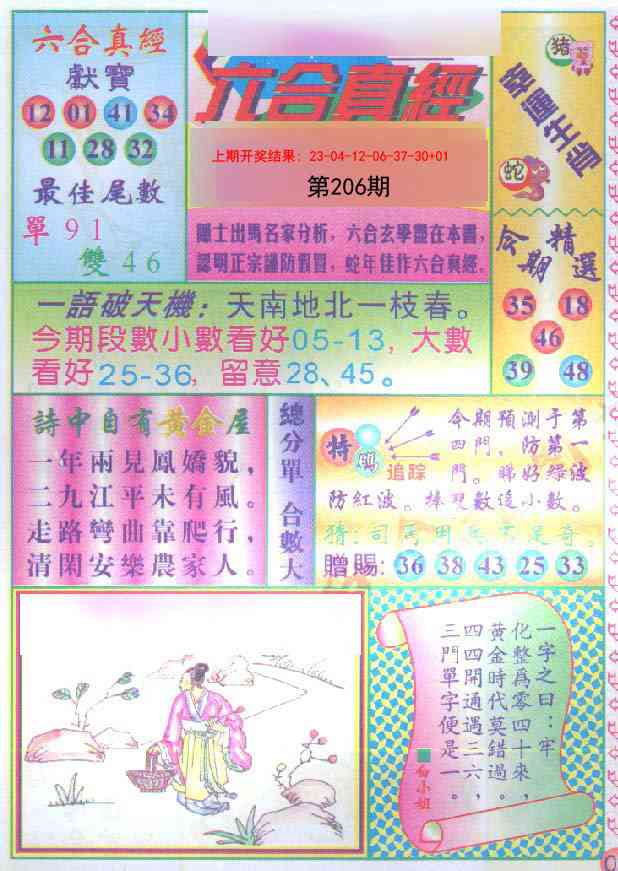 六合真經
獻寶
12 01 41 34
11 28 32
最佳尾數
單91
雙46
六合真經
上期开奖结果：23-04-12-06-37-30+01
第206期
隱士出馬名家分析，六合玄學盡在本書，
認明正宗謹防假冒，蛇年佳作六合真經。
豬
蛇
今期精選
35 18
46
39 48
一語破天機：天南地北一枝春。
今期段數小數看好05-13，大數
看好25-36，留意28、45。
詩中自有黃金屋
一年兩見鳳嬌貌，
二九江平未有風。
走路彎曲靠爬行，
清閑安樂農家人。
總分單 合數大
特碼追踪
今期預測于第
四門，防第一
門。睇好綠波
防紅波。捧雙數追小數。
贈賜：36 38 43 25 33
一字之曰：牢
化整爲零四十來，
黃金時代莫錯過，
四四開通遇三六，
三門單字便是一。
白小姐